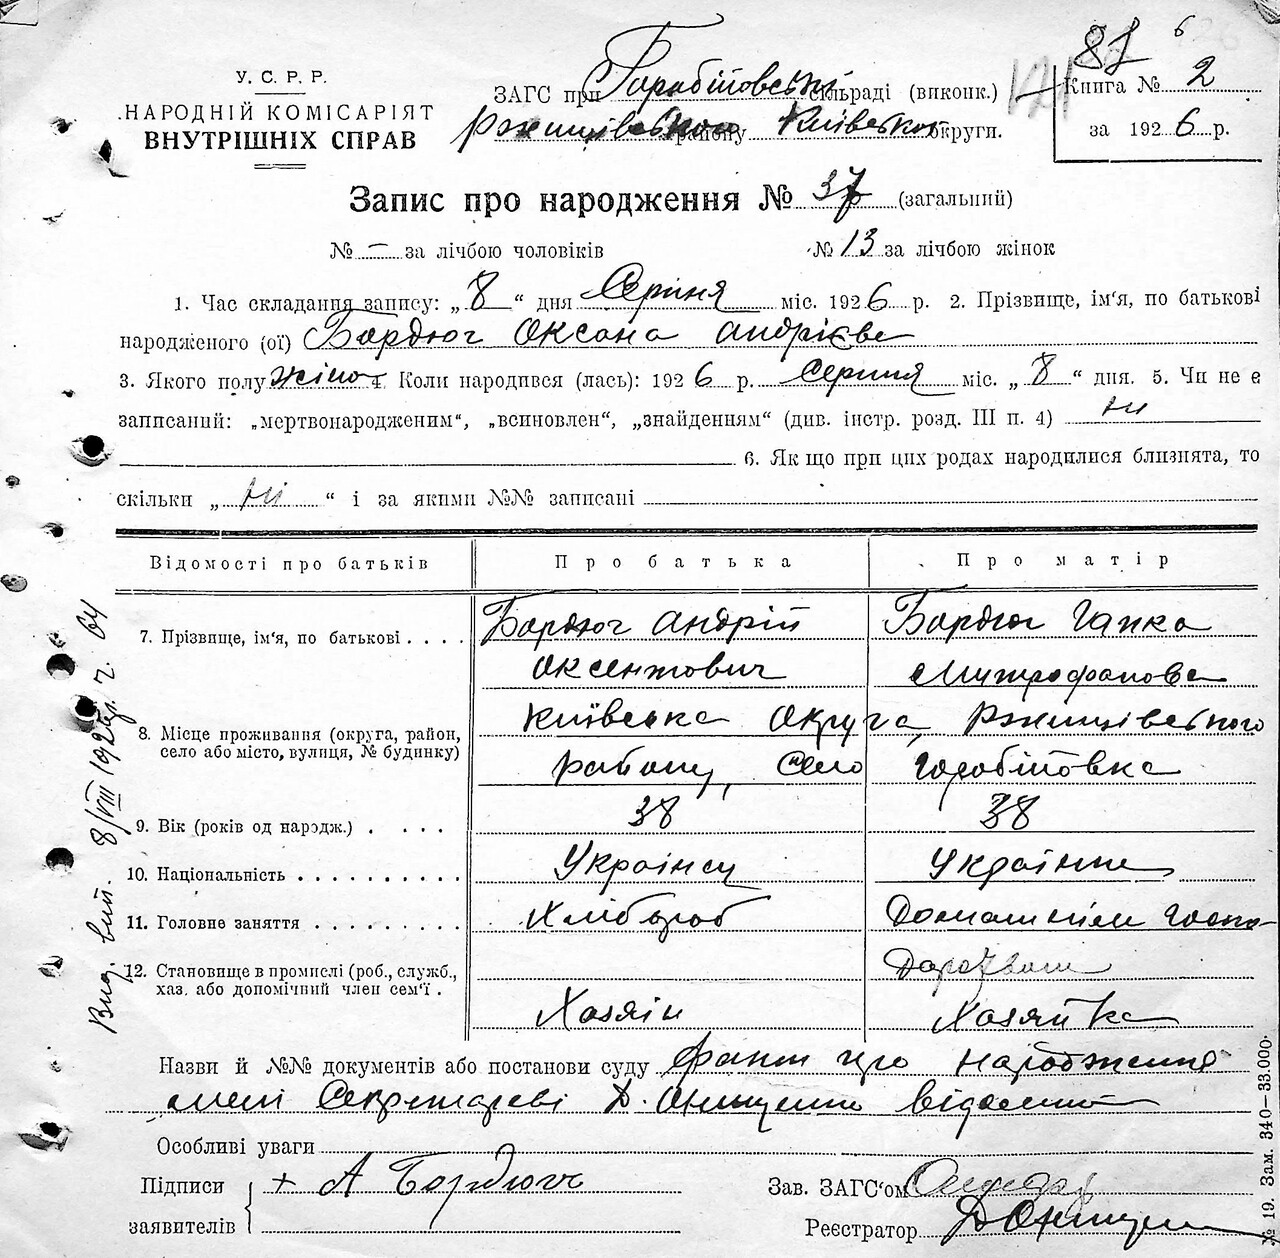 87 6
У. С. Р. Р.
НАРОДНІЙ КОМІСАРІЯТ
ВНУТРІШНІХ СПРАВ
ЗАГС при Горобіївській сільраді (виконк.)
Ржищівського району Київської округи.
Книга № 2
за 1926 р.
Запис про народження № 37 (загальний)
№ – за лічбою чоловіків № 13 за лічбою жінок
1. Час складання запису: „ 8 “ дня Серпня міс. 1926 р. 2. Прізвище, ім‘я, по батькові
народженого (ої) Бордюг Оксана Андрієва
3. Якого полу жіно 4. Коли народився (лась): 1926 р. Серпня міс. „ 8 “ дня. 5. Чи не є
записаний: „мертвонародженим“, „всиновлен“, „знайденням“ (див. інстр. розд. III п. 4) ні
6. Як що при цих родах народилися близнята, то
скільки „ ні “ і за якими №№ записані
Відомості про батьків Про батька Про матір
7. Прізвище, ім‘я, по батькові . . . . Бордюг Андрій Бордюг Гапка
Оксентович Митрофанова
8. Місце проживання (округа, район, село або місто, вулиця, № будинку) Київська Округа, Ржищівського
району, село Горобіївка
9. Вік (років од нарэдж.) . . . . 38 38
10. Національність . . . . . . . . . . Українец Українка
11. Головне заняття . . . . . . . . . Хлібороб Домашнім Госпо-
дарством
12. Становище в промислі (роб., служб., хаз. або допомічний член сем‘ї . Хозяін Хозяйка
Назви й №№ документів або постанови суду факт про народження
мені Секретареві Д. Онищенко відомий
Особливі уваги
Підписи заявителів + А Бордюг
Зав. ЗАГС‘ом
Реєстратор Д Онищенко
Вид. вит. 8/VIII 1926 р. ч. 64
№ 19. Зам. 340—33.000.